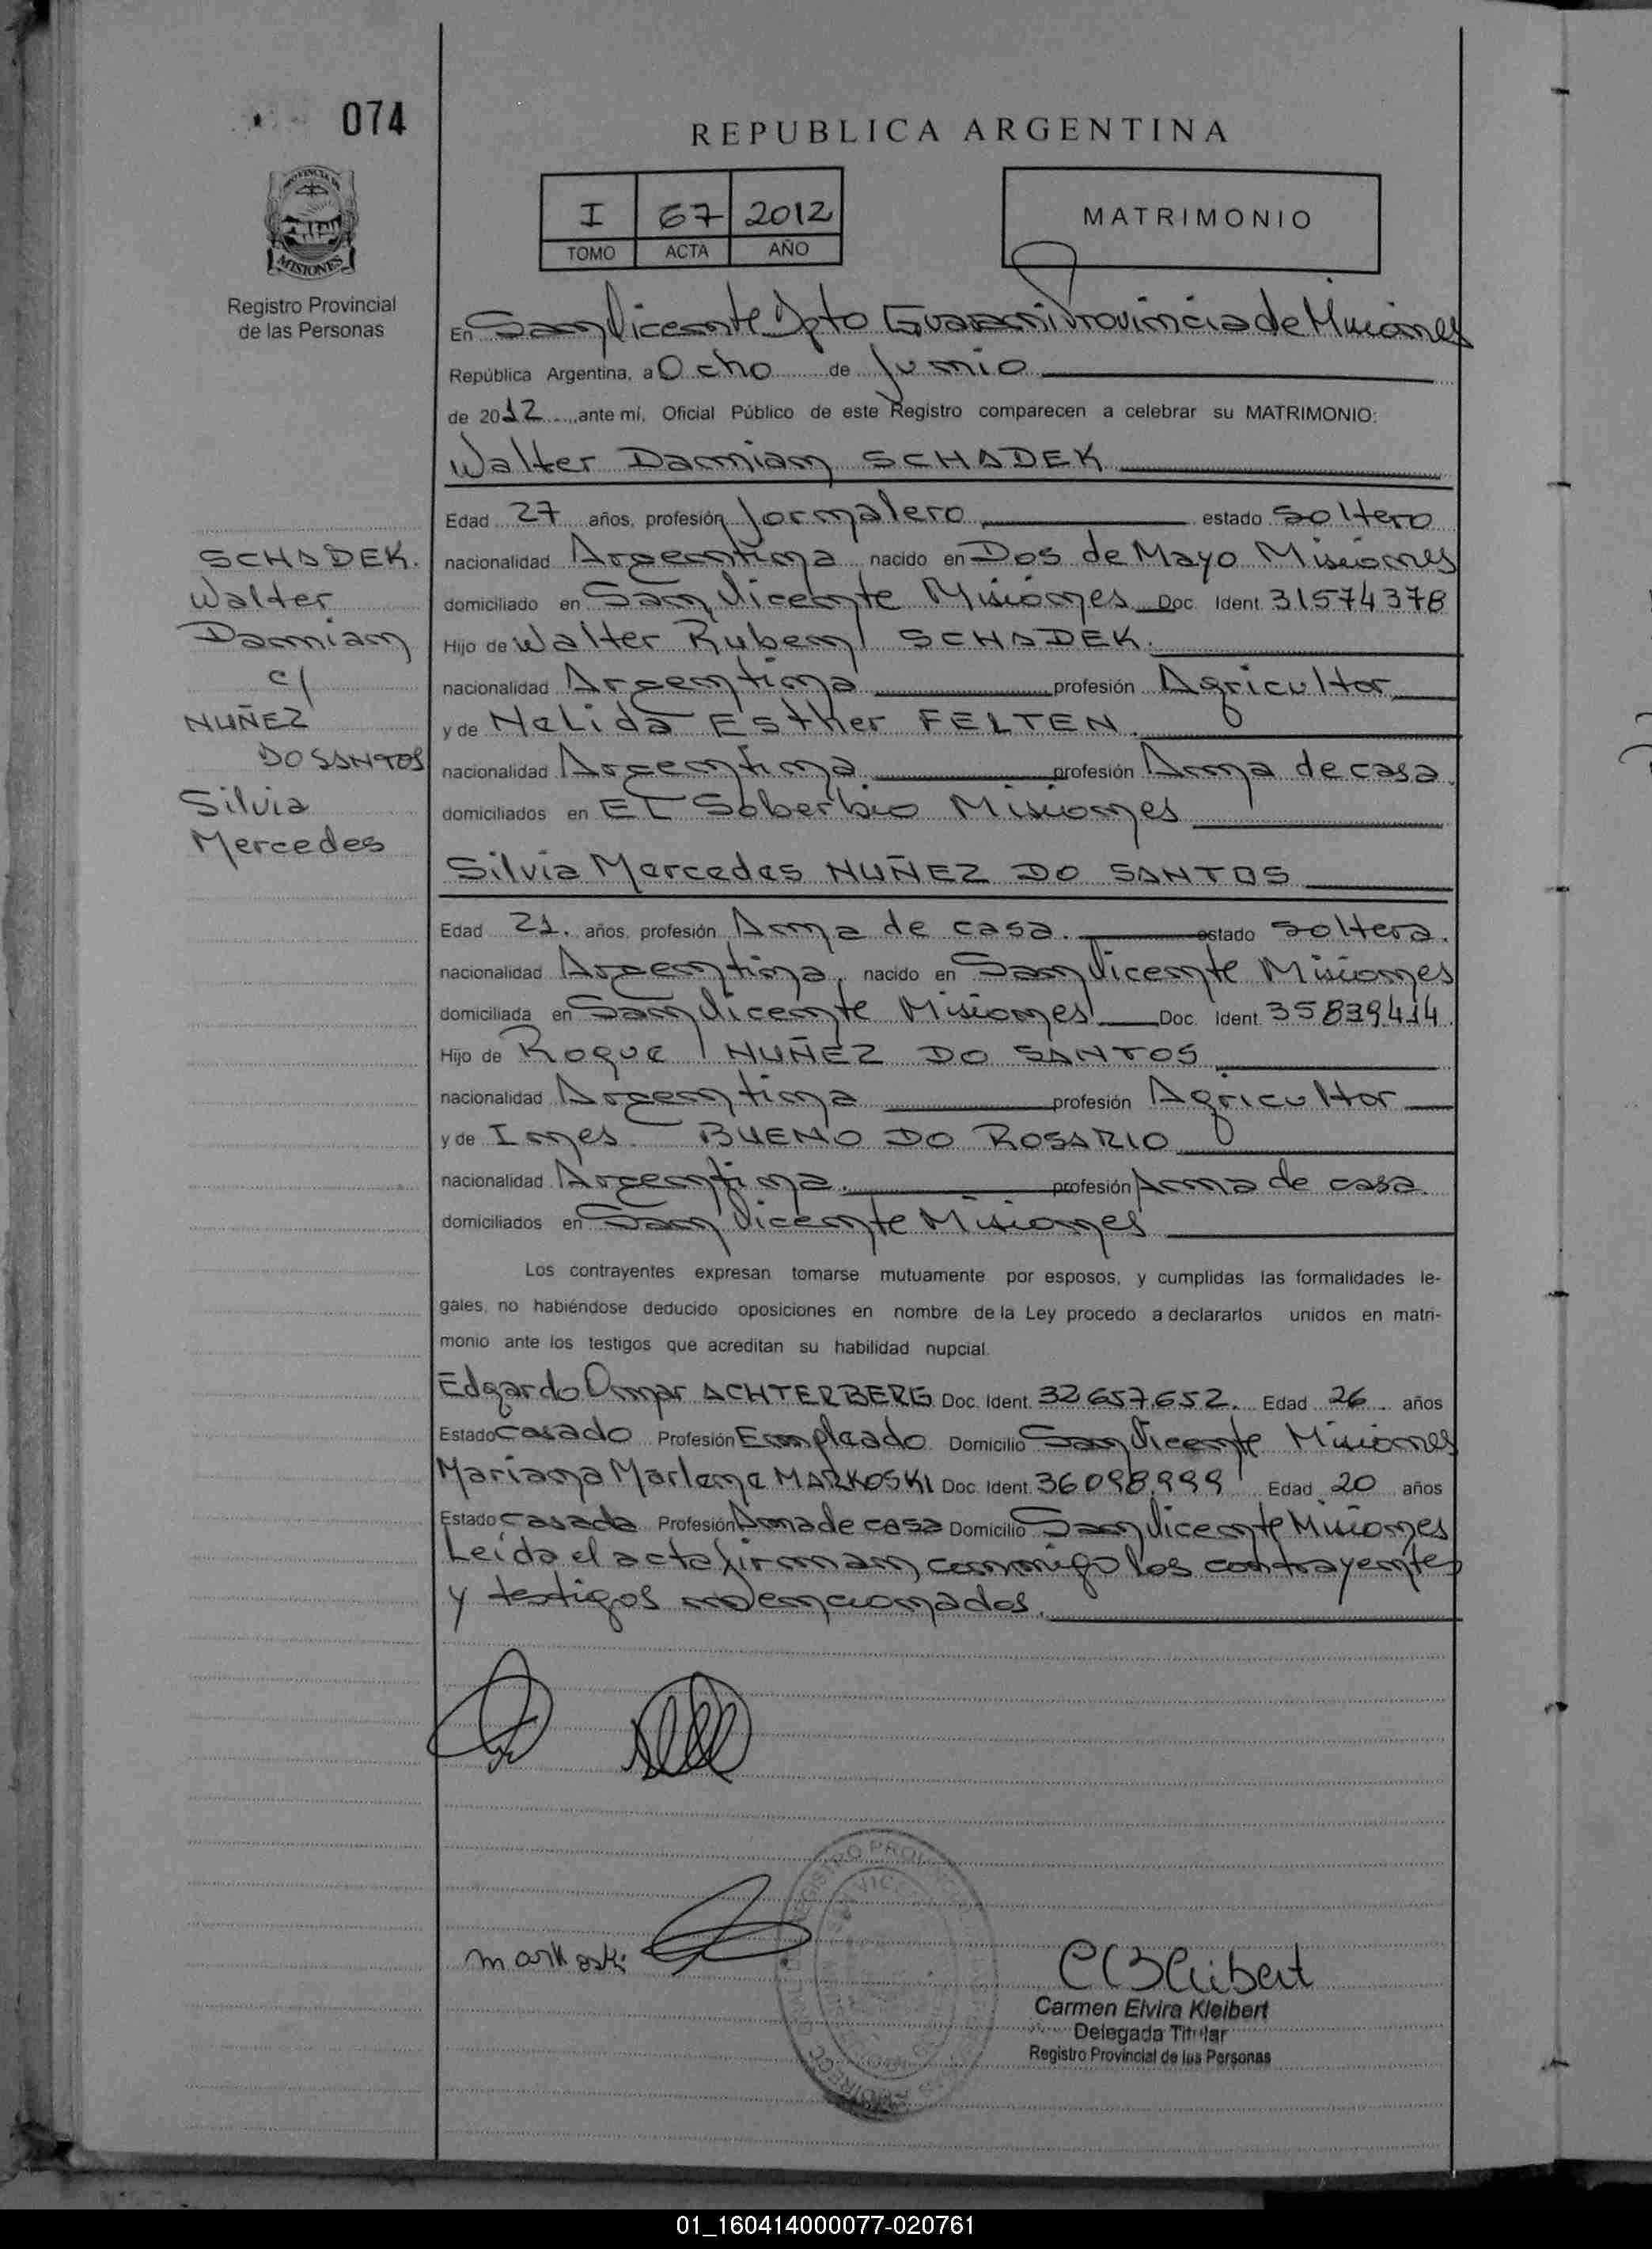 074
REPUBLICA ARGENTINA
PROVINCIA DE
MISIONES
Registro Provincial
de las Personas
I 67 2012
TOMO ACTA AÑO
MATRIMONIO
En San Vicente Dpto Guarani Provincia de Misiones
República Argentina, a Ocho de Junio
de 2012 ante mi, Oficial Público de este Registro comparecen a celebrar su MATRIMONIO:
Walter Damian SCHADEK
Edad 27 años, profesión Jornalero estado Soltero
nacionalidad Argentina nacido en Dos de Mayo Misiones
domiciliado en San Vicente Misiones Doc. Ident. 31574378
Hijo de Walter Ruben SCHADEK.
nacionalidad Argentina profesión Agricultor
y de Nelida Esther FELTEN.
nacionalidad Argentina profesión Ama de casa.
domiciliados en El Soberbio Misiones
SCHADEK.
Walter
Damian
c/
NUÑEZ
DO SANTOS
Silvia
Mercedes
Silvia Mercedes NUÑEZ DO SANTOS
Edad 21. años, profesión Ama de casa. estado Soltera.
nacionalidad Argentina, nacido en San Vicente Misiones
domiciliada en San Vicente Misiones Doc. Ident. 35839414
Hijo de Roque NUÑEZ DO SANTOS
nacionalidad Argentina profesión Agricultor
y de Ines. BUENO DO ROSARIO
nacionalidad Argentina. profesión Ama de casa.
domiciliados en San Vicente Misiones
Los contrayentes expresan tomarse mutuamente por esposos, y cumplidas las formalidades le-
gales, no habiéndose deducido oposiciones en nombre de la Ley procedo a declararlos unidos en matri-
monio ante los testigos que acreditan su habilidad nupcial.
Edgardo Omar ACHTERBERG Doc. Ident. 32657.652. Edad 26. años
Estado Casado Profesión Empleado Domicilio San Vicente Misiones
Mariana Marlene MARKOSKI Doc. Ident. 36098.999 Edad 20 años
Estado Casada Profesión Ama de casa Domicilio San Vicente Misiones
Leida el acta firman conmigo los contrayentes
y testigos mencionados.
Markoski
Carmen Elvira Kleibert
Delegada Titular
Registro Provincial de las Personas
01_160414000077-020761